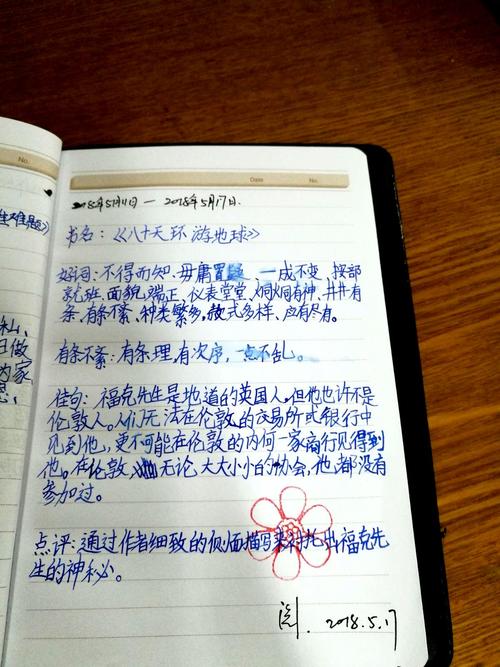 No.
生难题》
Date
No.
2018年5月11日 — 2018年5月17日.
书名:《八十天环游地球》
好词:不得而知、毋庸置疑、一成不变、按部
就班、面貌端正、仪表堂堂、炯炯有神、井井有
条、有条不紊、种类繁多、款式多样、应有尽有。
有条不紊:有条理,有次序,一点不乱。
佳句:福克先生是地道的英国人,但他也许不是
伦敦人。人们无法在伦敦的交易所或银行中
见到他,更不可能在伦敦的内何一家商行见得到
他。在伦敦无论大大小小的协会,他都没有
参加过。
点评:通过作者细致的侧面描写来衬托出福克先
生的神秘。
阅. 2018.5.17
日做
为家